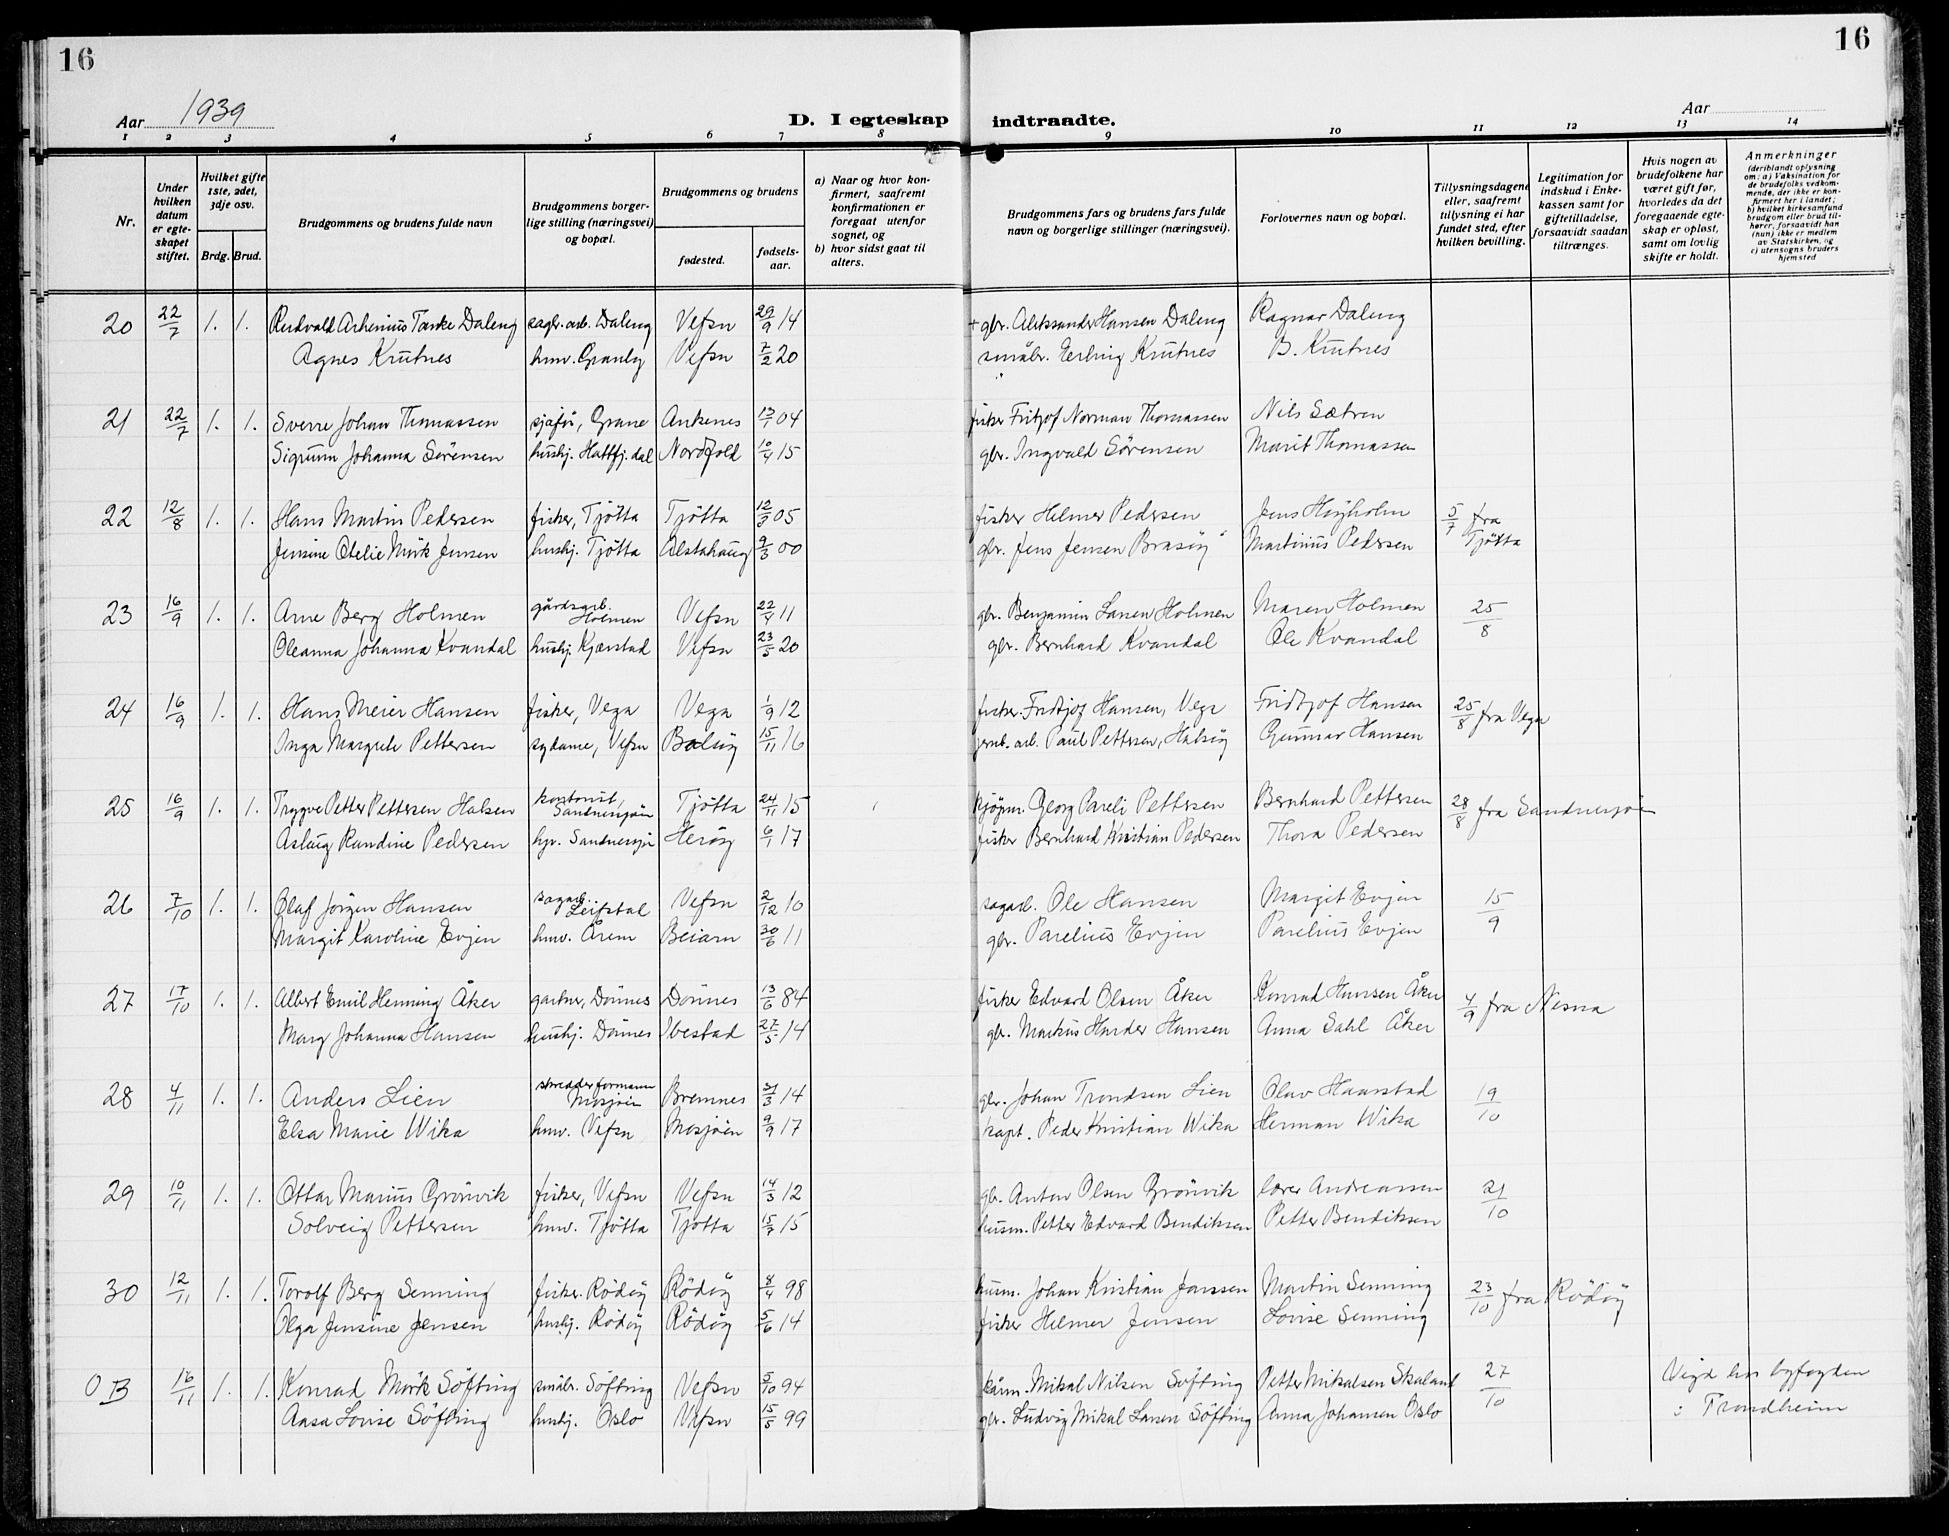 16
16
Aar 1939
D. I egteskap indtraadte.
Aar
1 2 3 4 5 6 7 8 9 10 11 12 13 14
Nr.
Under hvilken datum er egteskapet stiftet.
Hvilket gifte 1ste, 2det, 3dje osv.
Brdg. Brud.
Brudgommens og brudens fulde navn
Brudgommens borgerlige stilling (næringsvei) og bopæl.
Brudgommens og brudens
fødested.
fødselsaar.
a) Naar og hvor konfirmert, saafremt konfirmationen er foregaat utenfor sognet, og
b) hvor sidst gaat til alters.
Brudgommens fars og brudens fars fulde navn og borgerlige stillinger (næringsvei).
Forlovernes navn og bopæl.
Tillysningsdagene eller, saafremt tillysning ei har fundet sted, efter hvilken bevilling.
Legitimation for indskud i Enkekassen samt for giftetilladelse, forsaavidt saadan tiltrænges.
Hvis nogen av brudefolkene har været gift før, hvorledes da det foregaaende egteskap er opløst, samt om lovlig skifte er holdt.
Anmerkninger (deriblandt oplysning om: a) Vaksination for de brudefolks vedkommende, der ikke er konfirmert her i landet; b) hvilket kirkesamfund brudgom eller brud tilhører, forsaavidt han (hun) ikke er medlem av Statskirken, og c) utensogns bruders hjemsted
20 22/7 1. 1. Rudvald Arhenius Tanke Daleng sagbr.arb. Daleng Vefsn 29/9 14 + gbr. Aleksander Hansen Daleng Ragnar Daleng
Agnes Krutnes hmv. Granby Vefsn 7/2 20 småbr. Erling Krutnes B. Krutnes
21 22/7 1. 1. Sverre Johan Thomassen sjåfør, Grane Ankenes 13/1 04 fisker Fritjof Norman Thomassen Nils Sætren
Sigrunn Johanna Sørensen hushj. Hattfj.dal Nordfold 10/4 15 gbr. Ingvald Sørensen Marit Thomassen
22 12/8 1. 1. Hans Martin Pedersen fisker, Tjøtta Tjøtta 12/3 05 fisker Helmer Pedersen Jens Høyholm 5/7 fra Tjøtta
Jensine Otelie Mørk Jensen hushj. Tjøtta Alstahaug 9/3 00 gbr. Jens Jensen Brasøy Martinus Pedersen
23 16/9 1. 1. Arne Berg Holmen gårdsarb. Holmen Vefsn 22/4 11 gbr. Benjamin Larsen Holmen Maren Holmen 25/8
Oleanna Johanna Kvandal hushj. Kjærstad Vefsn 23/5 20 gbr. Bernhard Kvandal Ole Kvandal
24 16/9 1. 1. Hans Meier Hansen fisker, Vega Vega 1/9 12 fisker. Fridtjof Hansen, Vega Fridtjof Hansen 25/8 fra Vega
Inga Margrete Pettersen sydame, Vefsn Bolsøy 15/11 16 jernb.arb. Paul Pettersen, Halsøy Gunnar Hansen
25 16/9 1. 1. Trygve Petter Pettersen Halsen kontorist, Sandnessjøen Tjøtta 24/11 15 kjøpm. Georg Pareli Pettersen Bernhard Pettersen 28/8 fra Sandnessjøen
Aslaug Randine Pedersen hjv. Sandnessjøen Herøy 6/1 17 fisker Bernhard Kristian Pedersen Thora Pedersen
26 7/10 1. 1. Olaf Jørgen Hansen sagarb. Leifstal Vefsn 2/12 10 sagarb. Ole Hansen Margit Evjen 15/9
Margit Karoline Evjen hmv. Årem Beiarn 30/6 11 gbr. Parelius Evjen Parelius Evjen
27 17/10 1. 1. Albert Emil Henning Åker gartner, Dønnes Dønnes 13/6 84 fisker Edvard Olsen Åker Konrad Hansen Åker 4/9 fra Nesna
Mary Johanna Hansen hushj. Dønnes Ibestad 27/5 14 gbr. Markus Harder Hansen Anna Dahl Åker
28 4/11 1. 1. Anders Lien skredderformann Mosjøen Bremnes 31/3 14 gbr. Johan Trondsen Lien Olav Haarstad 19/10
Elsa Marie Wika hmv. Vefsn Mosjøen 9/9 17 kapt. Peder Kristian Wika Herman Wika
29 10/11 1. 1. Ottar Marius Grønvik fisker, Vefsn Vefsn 14/3 12 gb. Anton Olsen Grønvik lærer Andreassen 21/10
Solveig Pettersen hmv. Tjøtta Tjøtta 15/7 15 husm. Petter Edvard Bendiksen Petter Bendiksen
30 12/11 1. 1. Torolf Berg Senning fisker. Rødøy Rødøy 8/4 98 husm. Johan Kristian Janssen Martin Senning 23/10 fra Rødøy
Olga Jensine Jensen hushj. Rødøy Rødøy 5/6 14 fisker Helmer Jensen Lovise Senning
OB 16/11 1. 1. Konrad Mørk Søfting småbr. Søfting Vefsn 5/10 94 kårm. Mikal Nilsen Søfting Petter Mikalsen Skaland 27/10 Vigd hos byfogden
Aasa Lovise Søfting hushj. Oslo Vefsn 15/5 99 gbr. Ludvig Mikal Larsen Søfting Anna Johansen Oslo i Trondheim